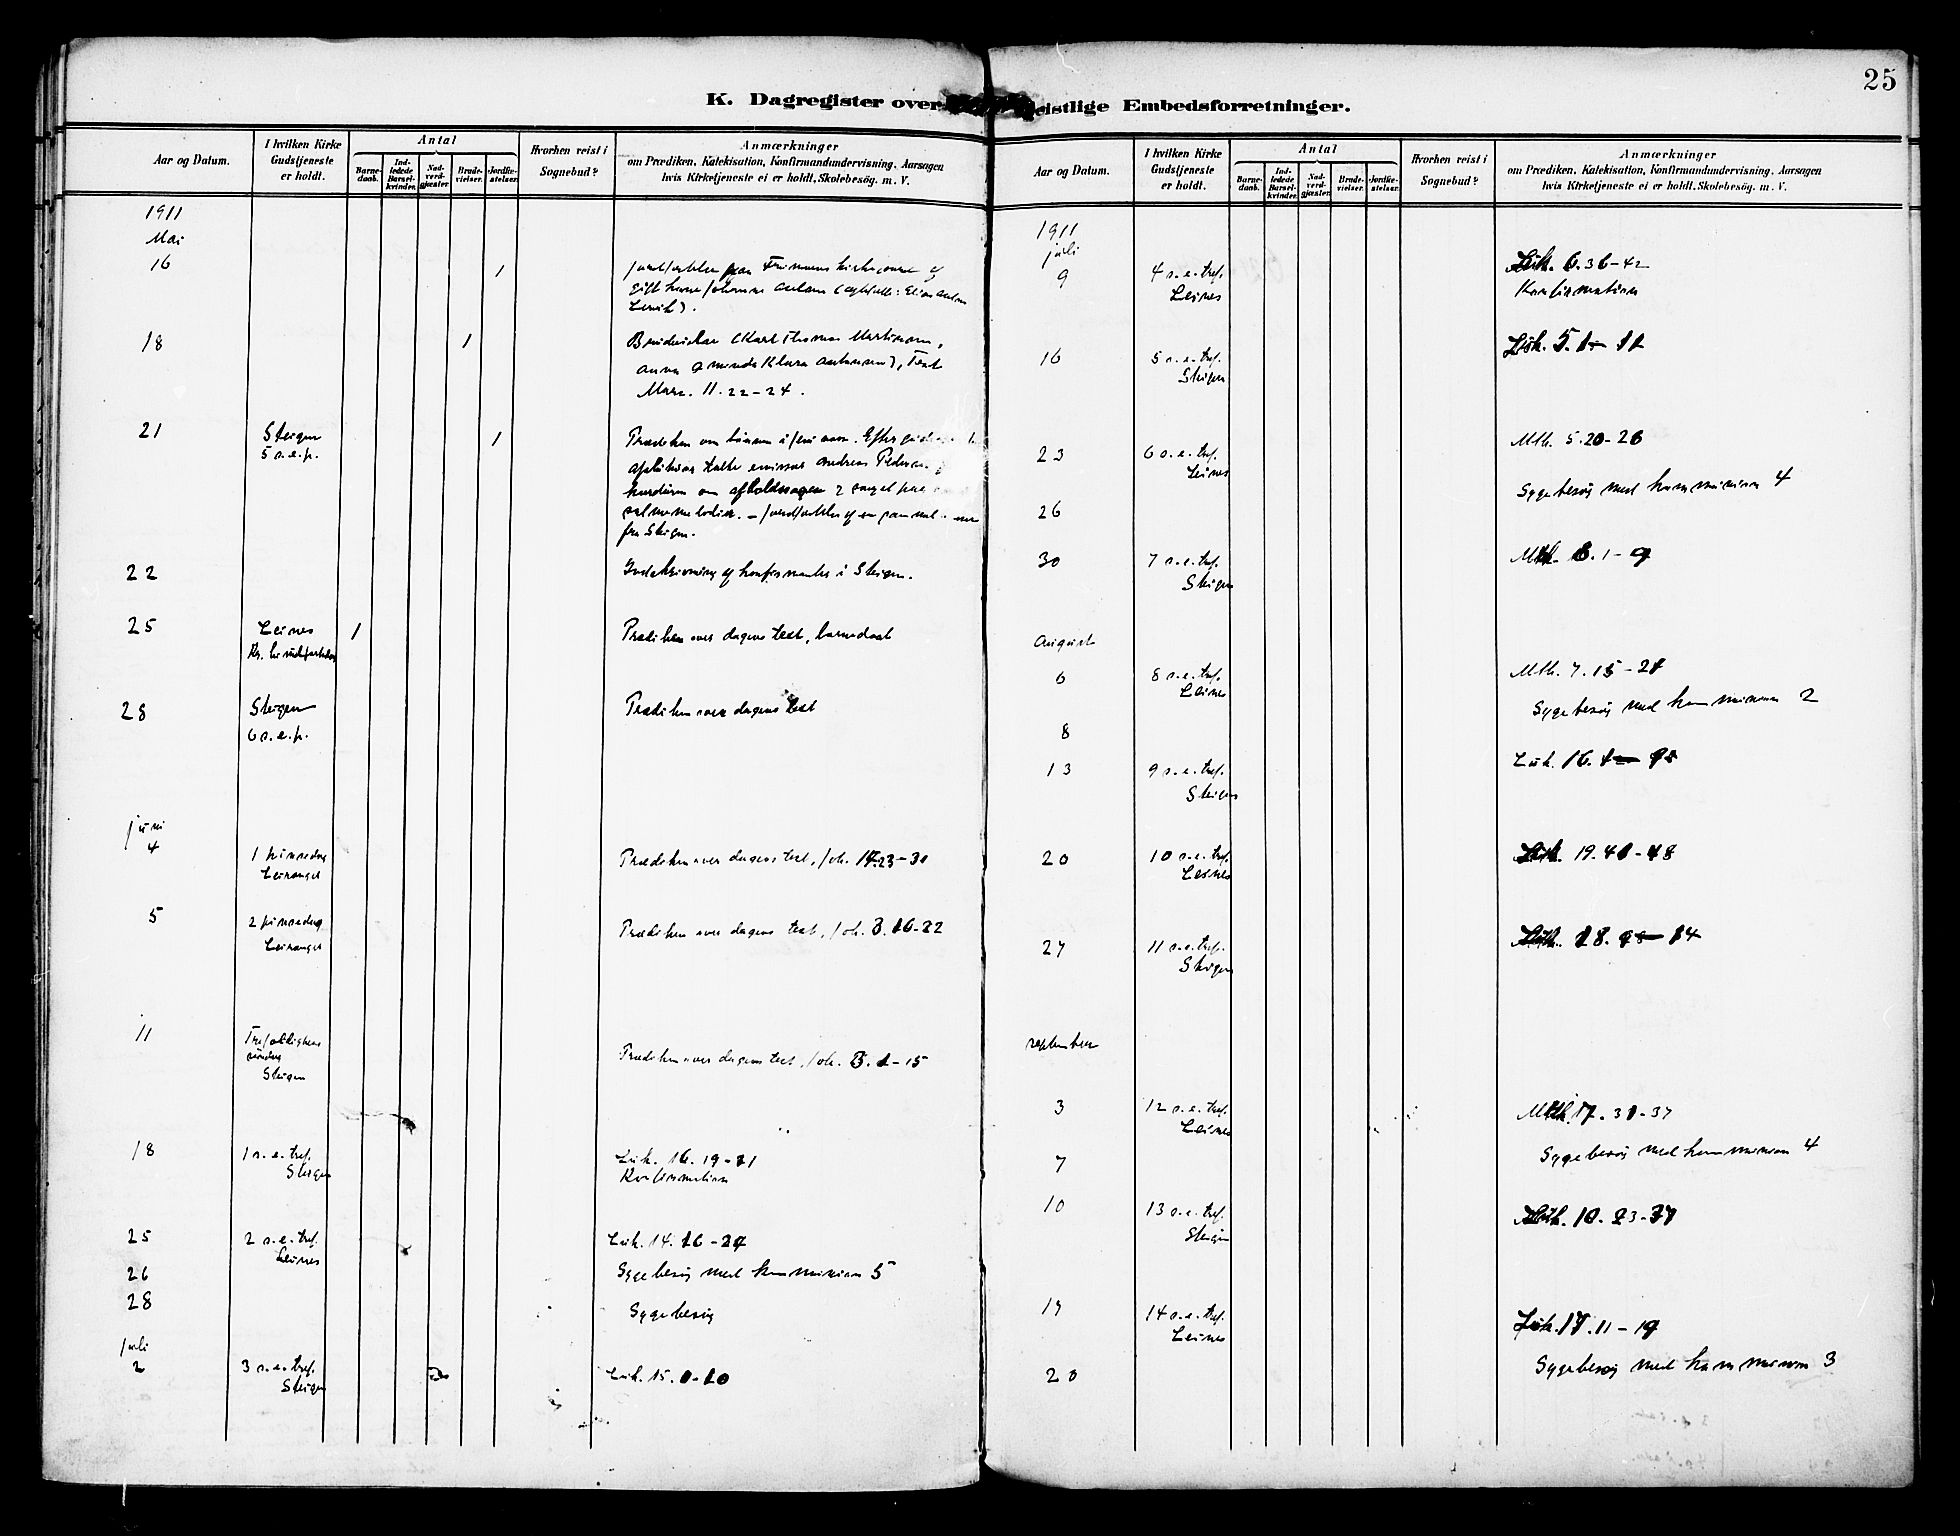 25
K. Dagregister over
eistlige Embedsforretninger.
Aar og Datum.
I hvilken Kirke
Gudstjeneste
er holdt.
Antal
Barne-
daab.
Ind-
ledede
Barsel-
kvinder.
Nad-
verd-
gjæster.
Brude-
vielser.
Jordfæ-
stelser.
Hvorhen reist i
Sognebud?
Anmærkninger
om Prædiken, Katekisation, Konfirmandundervisning, Aarsagen
hvis Kirketjeneste ei er holdt, Skolebesög. m. V.
1911
Mai
16
1
gift kone Johanna
18
1
Brudevielse (Karl Thomas Martinsen,
anna Aminda Klara antonsen), Text
Marc. 11. 22-24.
21
Steigen
5 s.e.p.
1
Prædiken om bönnen i Jesu navn. Efter
emissær Andreas Pedersen
om afholdssagen
fra Steigen.
22
Indskrivning af konfirmanter i Steigen.
25
Leines
Kr. himmelfartsdag
1
Prædiken over dagens text, barnedaab
28
Steigen
6 s.e.p.
Prædiken over dagens text
juni
4
1 pinsedag
Leiranger
Prædiken over dagens text, Joh. 14.23-30
5
2 pinsedag
Leiranger
Prædiken over dagens text, Joh. 3. 16-22
11
Trefoldigheds
söndag
Steigen
Prædiken over dagens text, Joh. 3. 1-15
18
1 s.e.tref.
Steigen
Luk. 16. 19-31
Konfirmation
25
2 s.e.tref.
Leines
Luk. 14. 16-24
26
Sygebesög med kommunion 5
28
Sygebesög
juli
2
3 s.e.tref.
Steigen
Luk. 15. 1-10
Aar og Datum.
I hvilken Kirke
Gudstjeneste
er holdt.
Antal
Barne-
daab.
Ind-
ledede
Barsel-
kvinder.
Nad-
verd-
gjæster.
Brude-
vielser.
Jordfæ-
stelser.
Hvorhen reist i
Sognebud?
Anmærkninger
om Prædiken, Katekisation, Konfirmandundervisning, Aarsagen
hvis Kirketjeneste ei er holdt, Skolebesög. m. V.
1911
juli
9
4 s.e.tref.
Leines
Luk. 6. 36-42
Konfirmation
16
5 s.e.tref.
Steigen
Luk. 5. 1-11
23
6 s.e.tref.
Leines
Mth. 5. 20-26
26
Sygebesög med kommunion 4
30
7 s.e.tref.
Steigen
Mrk. 8. 1-9
August
6
8 s.e.tref.
Leines
Mth. 7. 15-21
8
Sygebesög med kommunion 2
13
9 s.e.tref.
Steigen
Luk. 16.
20
10 s.e.tref.
Leines
Luk. 19. 41-48
27
11 s.e.tref.
Steigen
Luk. 18. 9-14
september
3
12 s.e.tref.
Leines
Mrk. 7. 31-37
7
Sygebesög med kommunion 4
10
13 s.e.tref.
Steigen
Luk. 10. 23-37
17
14 s.e.tref.
Leines
Luk. 17. 11-19
20
Sygebesög med kommunion 3